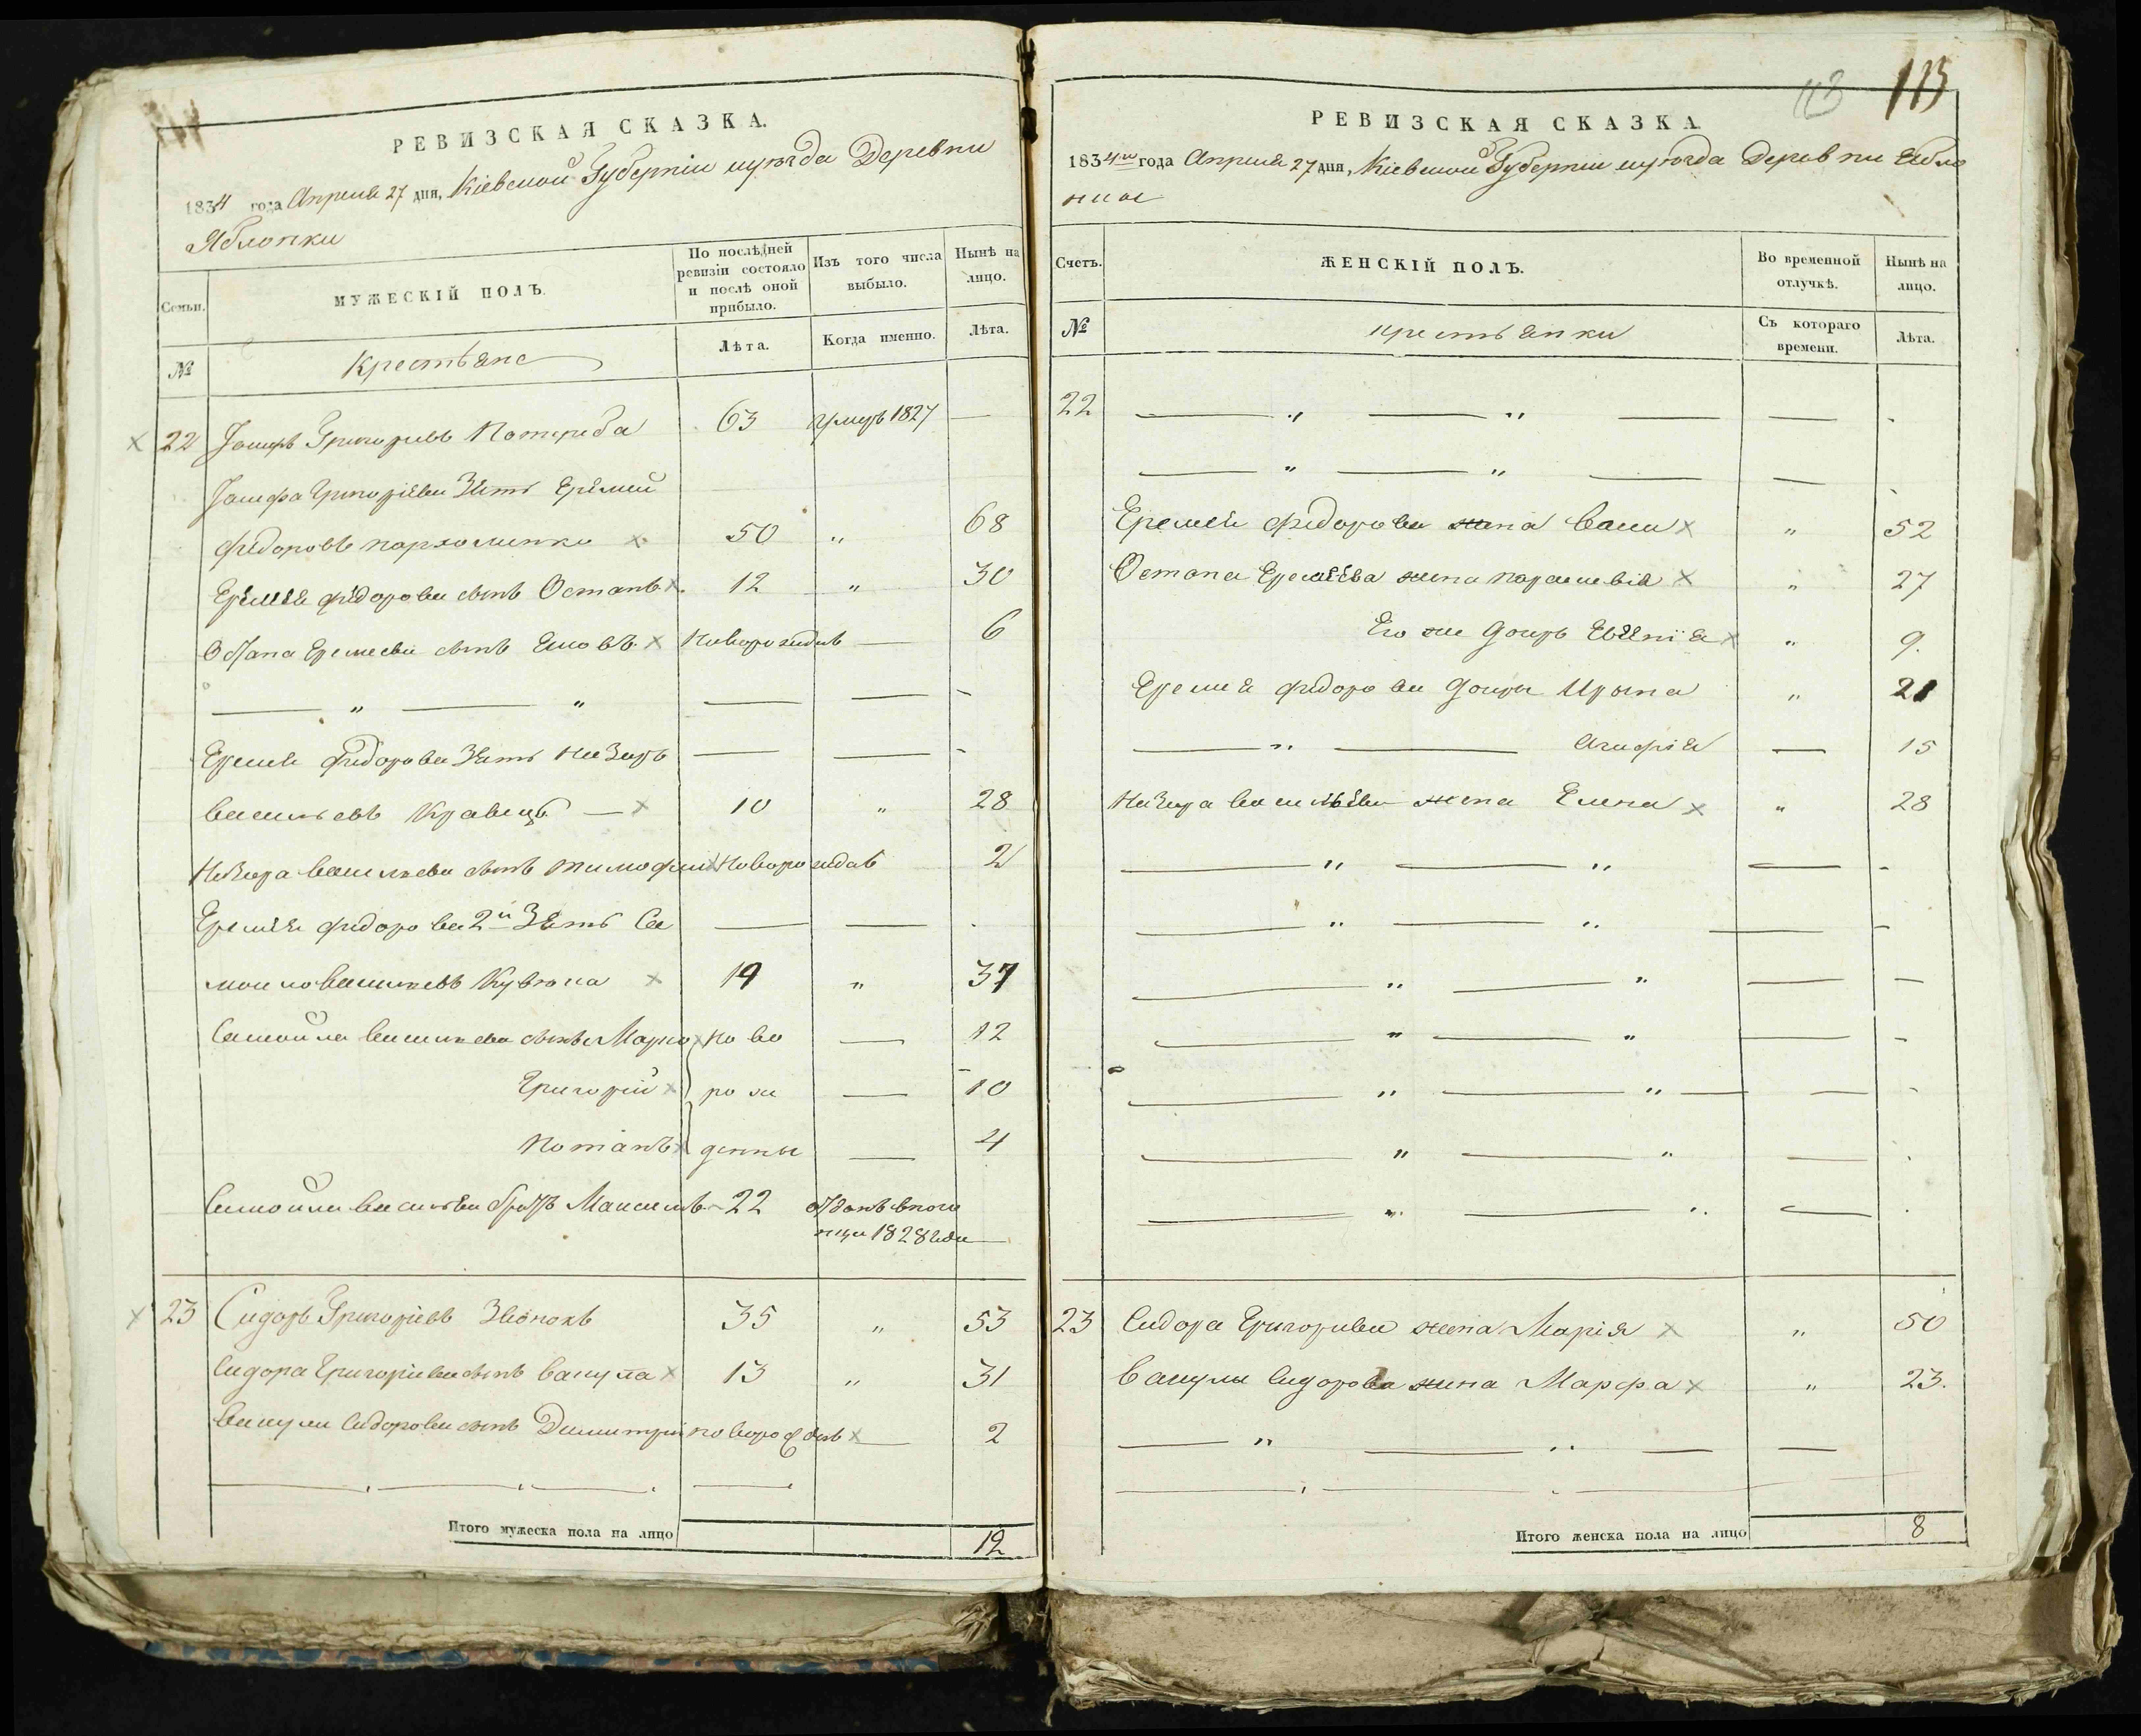 113 113
РЕВИЗСКАЯ СКАЗКА.
1834 года Апреля 27 дня, Кіевской Губерніи уѣзда Деревни
Яблонки
Семьи. МУЖЕСКІЙ ПОЛЪ. По послѣдней ревизіи состояло и послѣ оной прибыло. Изъ того числа выбыло. Нынѣ на лицо.
№ Крестьяне Лѣта. Когда именно. Лѣта.
22 Григорьевъ Потереба 63 умеръ 1827 —
Григоріева Зять Еремей
Федоровъ пархоменко 50 " 68
Еремѣя федорова сынъ Остапъ 12 " 30
Остапа Еремеева сынъ новорожденъ — 6
— " — " — — -
Еремея федорова Зять Назаръ — — -
Васильевъ Кравецъ — 10 " 28
Назара Васильева сынъ тимофей новорожденъ 2
Еремея федорова 2й Зять Са — — -
мойло Васильевъ 19 " 37
Самойла Васильева сынъ Марко ново — 12
Григорій рож — 10
Потапъ денны — 4
Самойла Васильева братъ Максимъ 22 отданъ
1828 года —
23 Сидоръ Григоріевъ Звонокъ 35 " 53
Сидора Григоріева сынъ Вакула 13 " 31
Вакулы Сидорова сынъ Димитрій новорожденъ — 2
Итого мужеска пола на лицо 12
РЕВИЗСКАЯ СКАЗКА.
1834го года Апреля 27 дня, Кіевской Губерніи уѣзда Деревни Ябло
нки
Счетъ. ЖЕНСКІЙ ПОЛЪ. Во временной отлучкѣ. Нынѣ на лицо.
№ крестьянки Съ котораго времени. Лѣта.
22 — " — " — — -
— " — " — — -
Еремея федорова жена " 52
Остапа Еремѣева жена параскевія " 27
Его же дочерь " 9.
Еремея федорова дочери Ирына " 21
— " — Агафія — 15
Назара васильева жена Елена " 28
— " — " — -
— " — " — -
— " — " — —
— " — " — -
— " — " — — -
— " — " — -
— " — " — -
23 Сидора Григорьева жена Марія " 50
Вакулы Сидорова жена Марфа " 23.
— " — " — —
Итого женска пола на лицо 8